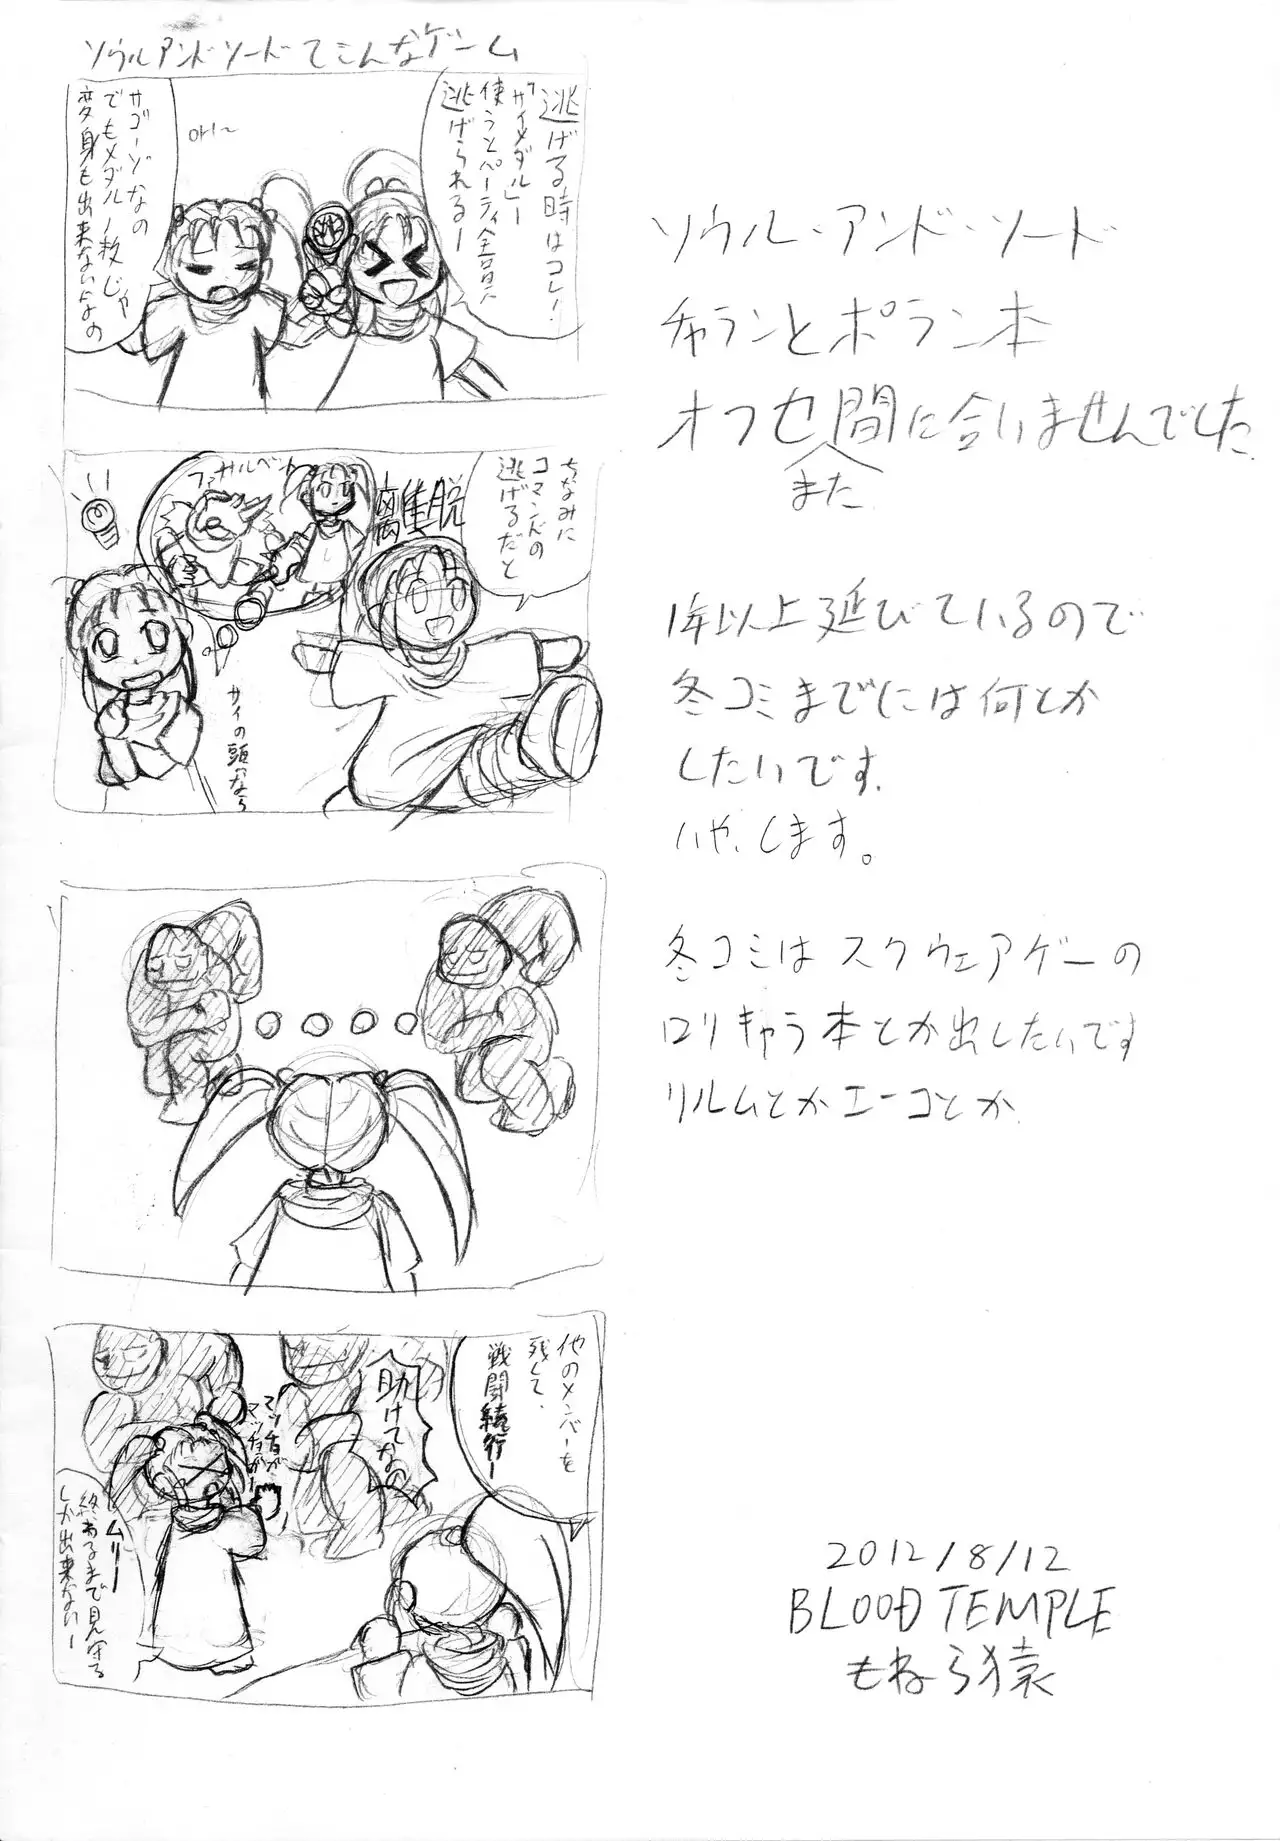 ソウルアンドソードてこんなゲーム
逃げる時はコレ!
「サイメダル」ー
使うとパーティ全員
逃げられるー
サゴーゾなの
でもメダル1枚じゃ
変身も出来ないなの
ちなみに
コマンドの
逃げるだと
離脱
ファイナルベント
サイの頭なら
他のメンバーを
残して、
戦闘続行ー
助けてなの
マッチョが
マッチョがー
ムリー
終わるまで見守る
しか出来ないー
ソウル・アンド・ソード
チャランとポラン本
オフセまた間に合いませんでした
1年以上延びているので
冬コミまでには何とか
したいです.
いや、します。
冬コミはスクウェアゲーの
ロリキャラ本とか出したいです
リルムとかエーコとか
2012/8/12
BLOOD TEMPLE
もねら猿